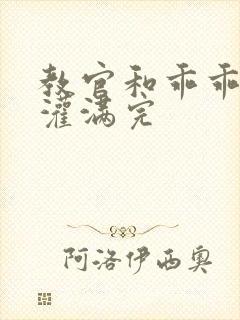 教官和乖乖
灌满完
阿洛伊西奥